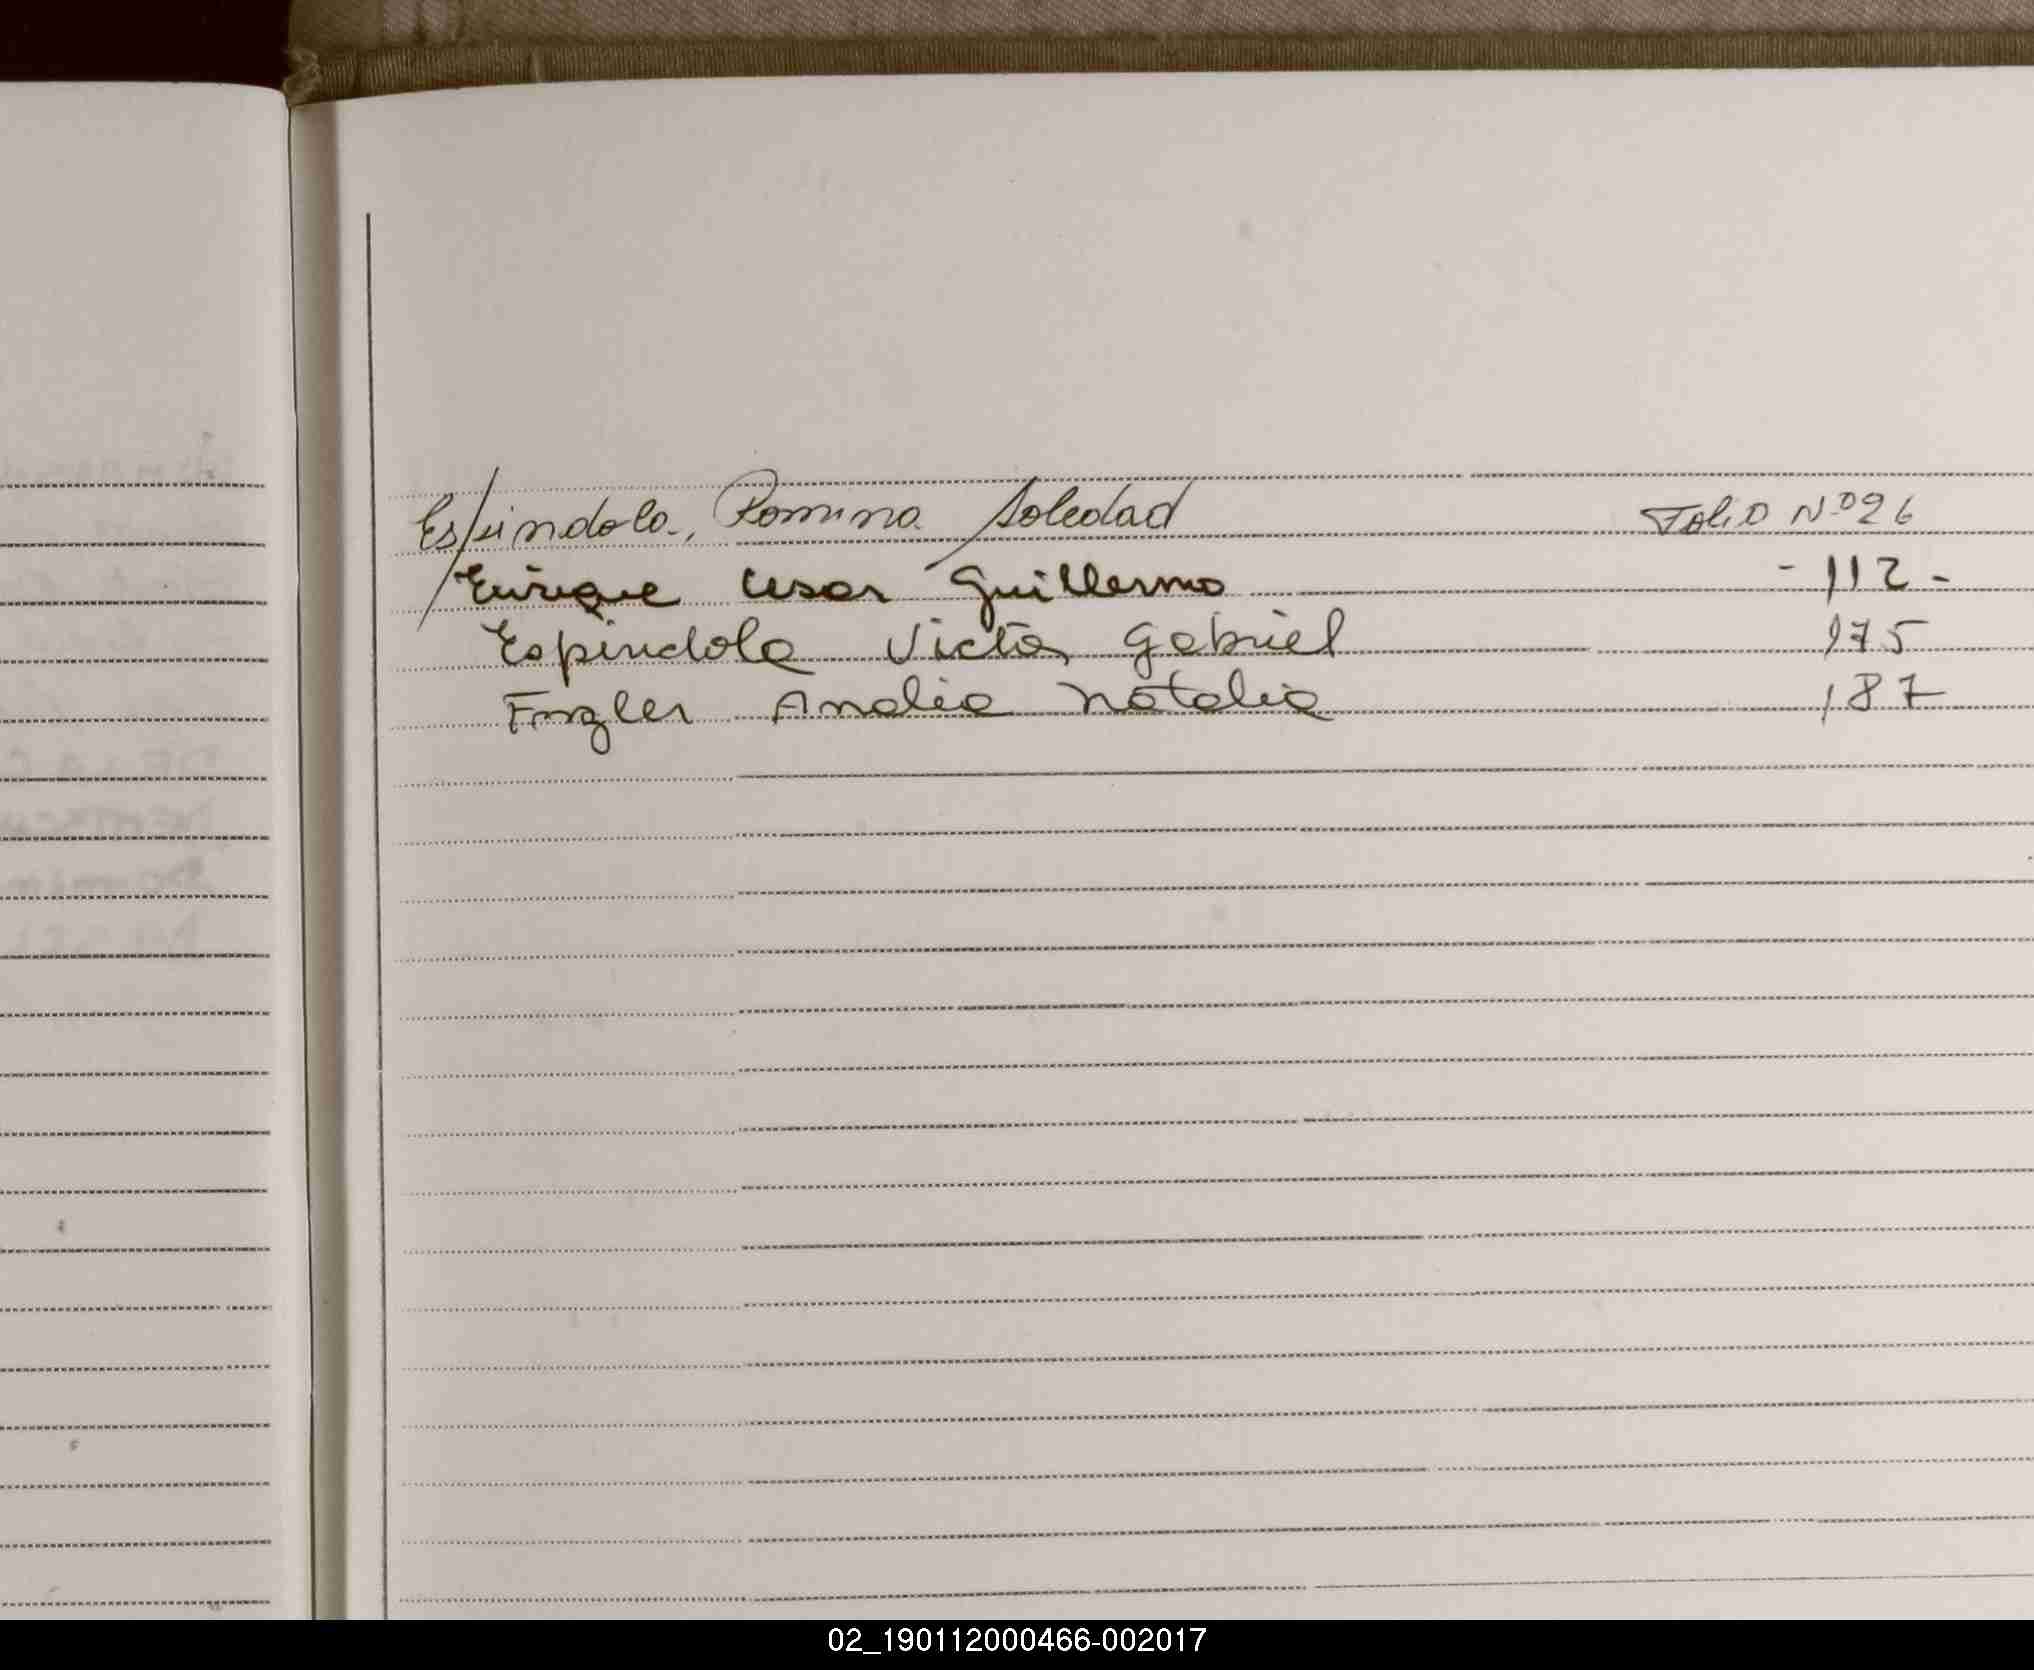 Espindola, Romina Soledad Folio Nº 26
Enrique Cesar Guillermo - 112 -
Espindola Victor Gabriel 175
Analia Natalia 187
02_190112000466-002017